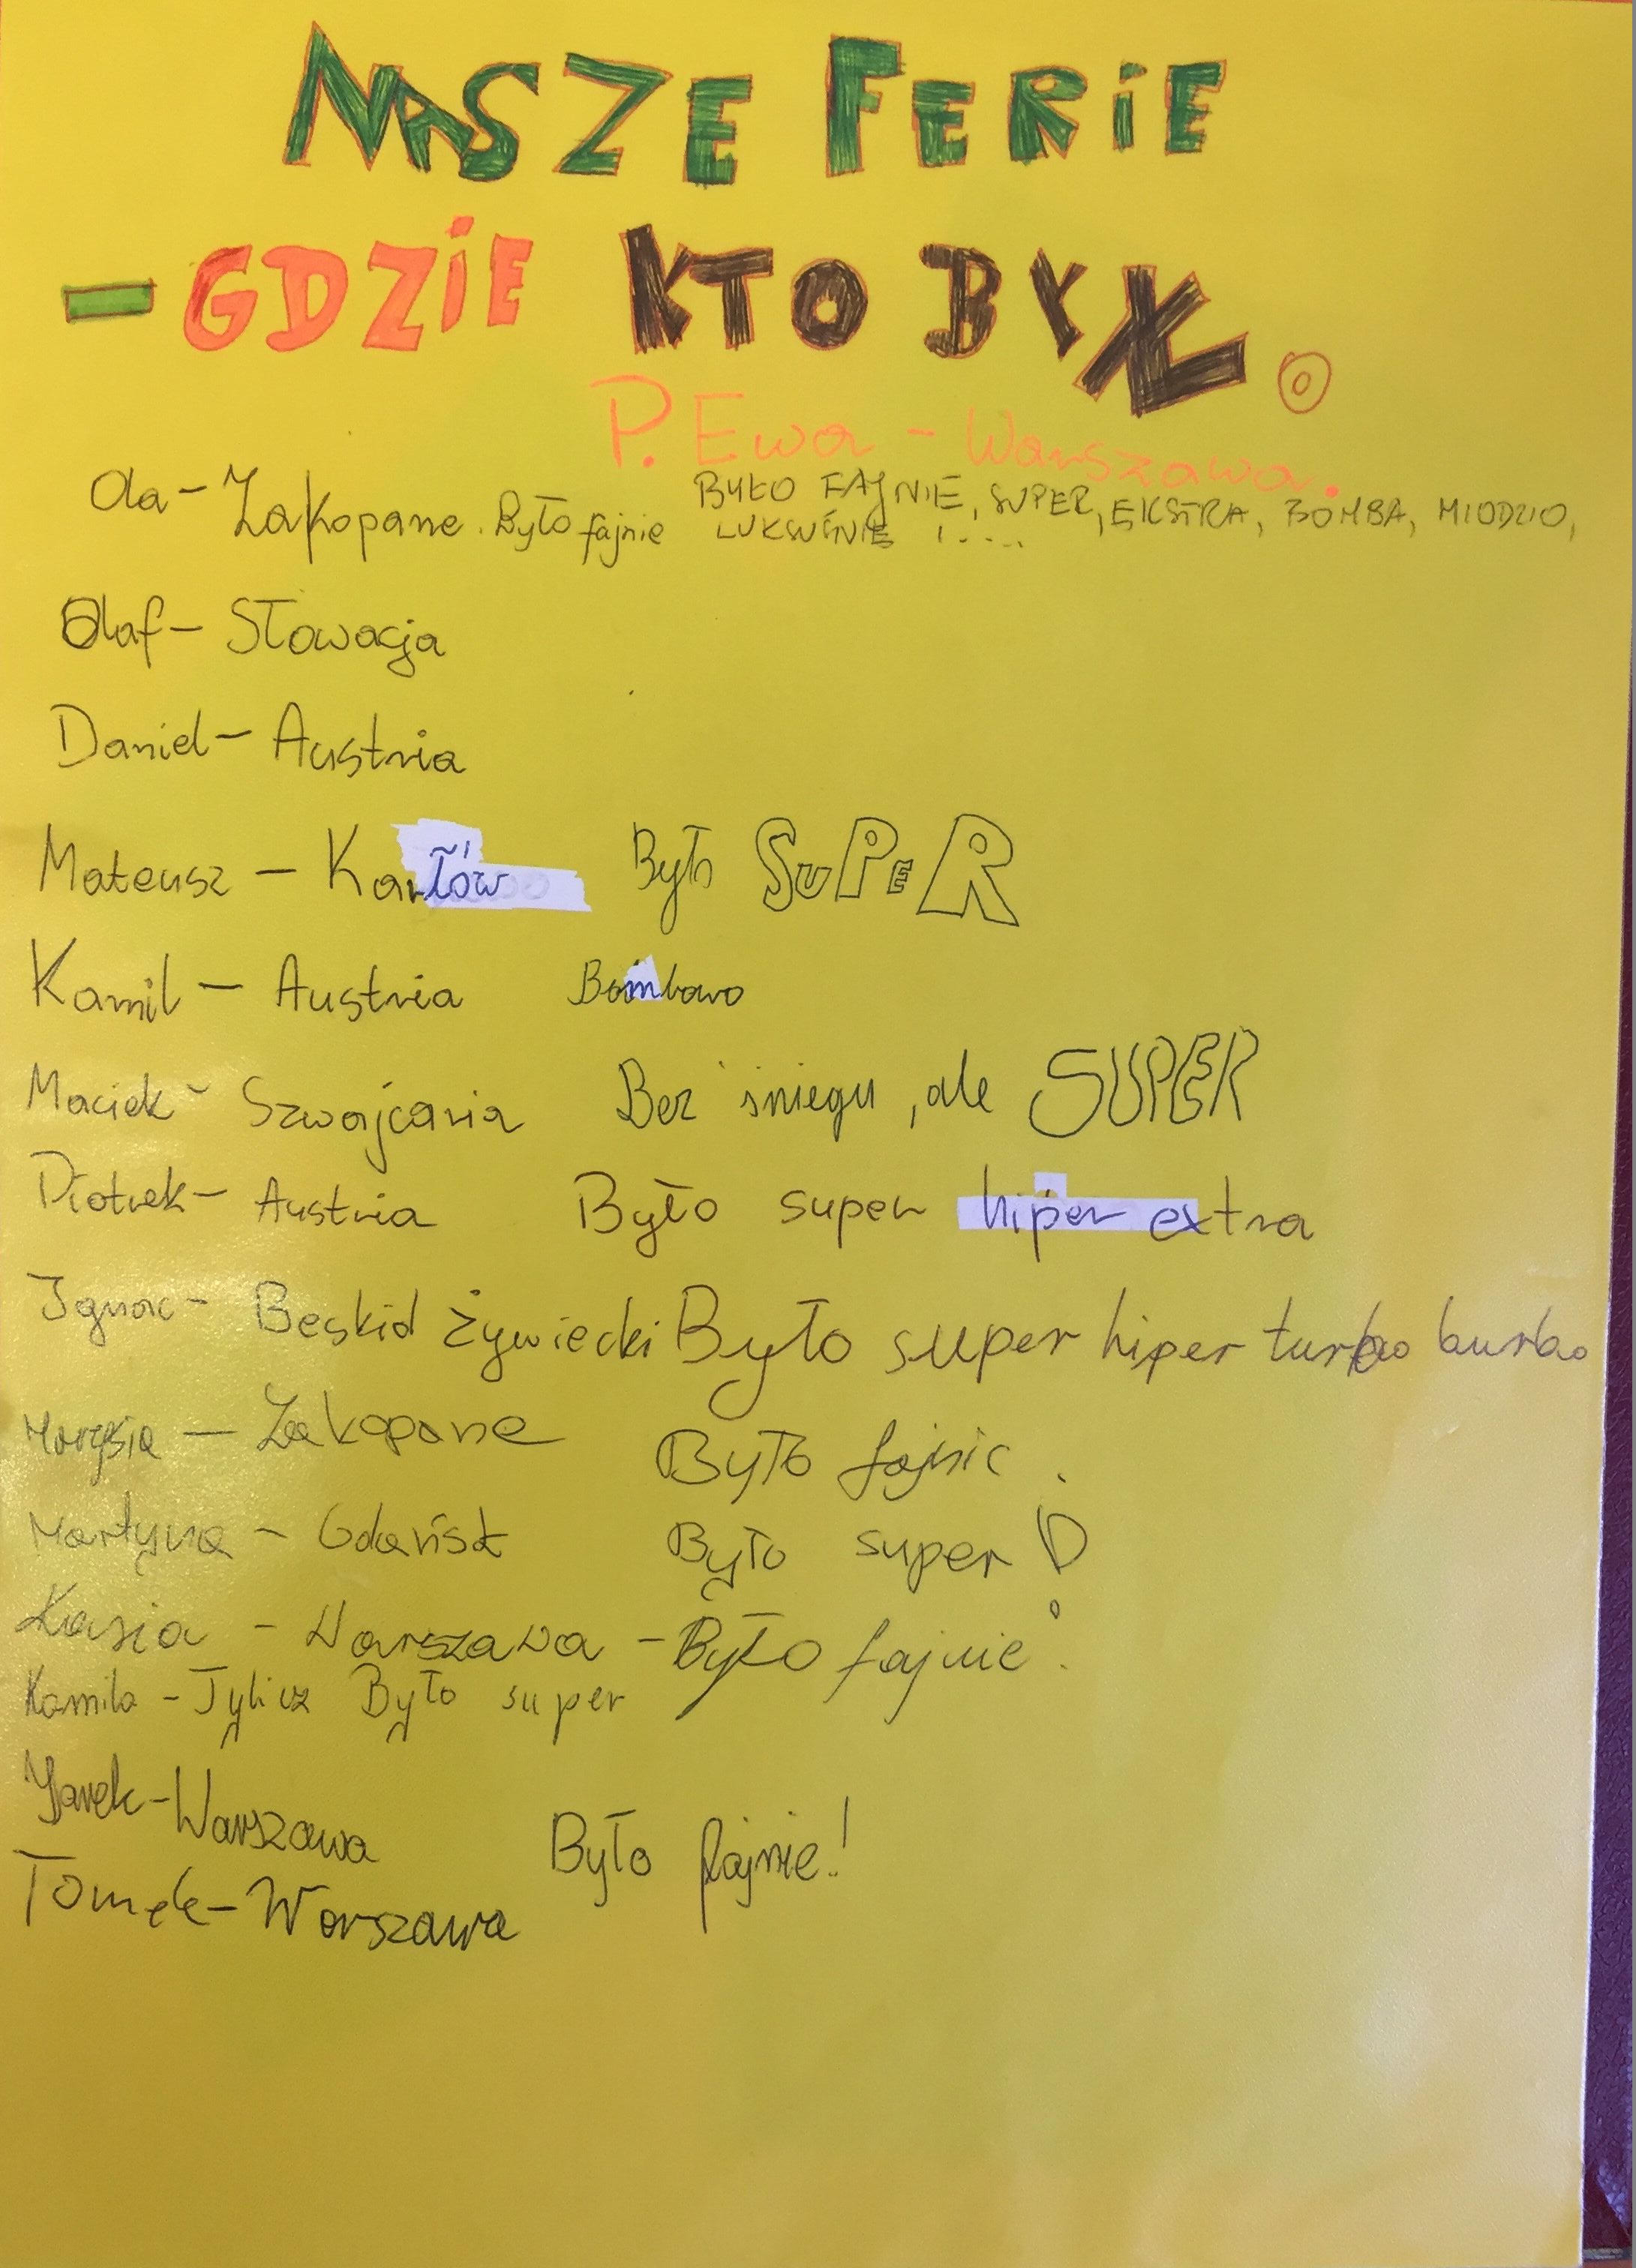 NASZE FERIE
- GDZIE KTO BYŁ.
P. Ewa - Warszawa.
Ola - Zakopane. Było fajnie
BYŁO FAJNIE, SUPER, EKSTRA, BOMBA, MIODZIO,
!....
Olaf - Słowacja
Daniel - Austria
Mateusz - Karłów Było SUPER
Kamil - Austria Bombowo
Maciek - Szwajcaria Bez śniegu, ale SUPER
Piotrek - Austria Było super hiper extra
Ignac - Beskid Żywiecki Było super hiper turbo burbo
Marysia - Zakopane Było fajnie.
Martyna - Gdańsk Było super!
Kasia - Warszawa - Było fajnie.
Kamila - Tylicz Było super
Jarek - Warszawa
Było fajnie!
Tomek - Warszawa